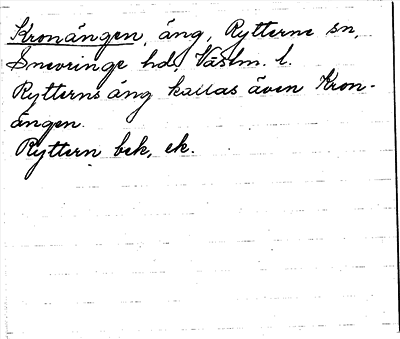 Kronängen, äng, Rytterne sn,
Snevringe hd, Västm. l.
Rytterns äng kallas även Kron-
ängen.
Ryttern bek, ek.